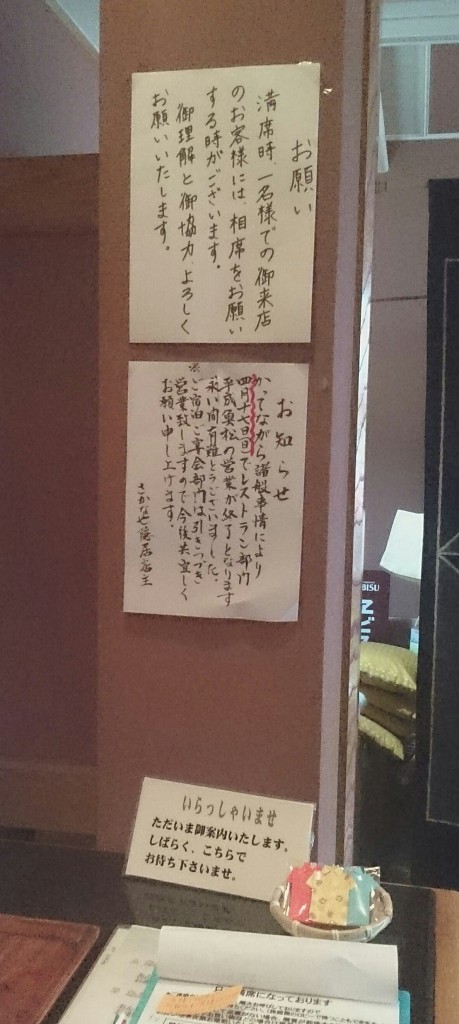 お願い
満席時、一名様での御来店
のお客様には、相席をお願い
する時がございます。
御理解と御協力、よろしく
お願いいたします。
お知らせ
かってながら諸般事情により
四月十七日(日)でレストラン部門
の営業が終了となります
永い間有難とうございました。
※ご宿泊ご宴会部門は引きつづき
営業致しますので今後共宜しく
お願い申し上げます。
店主
いらっしゃいませ
ただいま御案内いたします。
しばらく、こちらで
お待ち下さいませ。
BISU
満席になっております